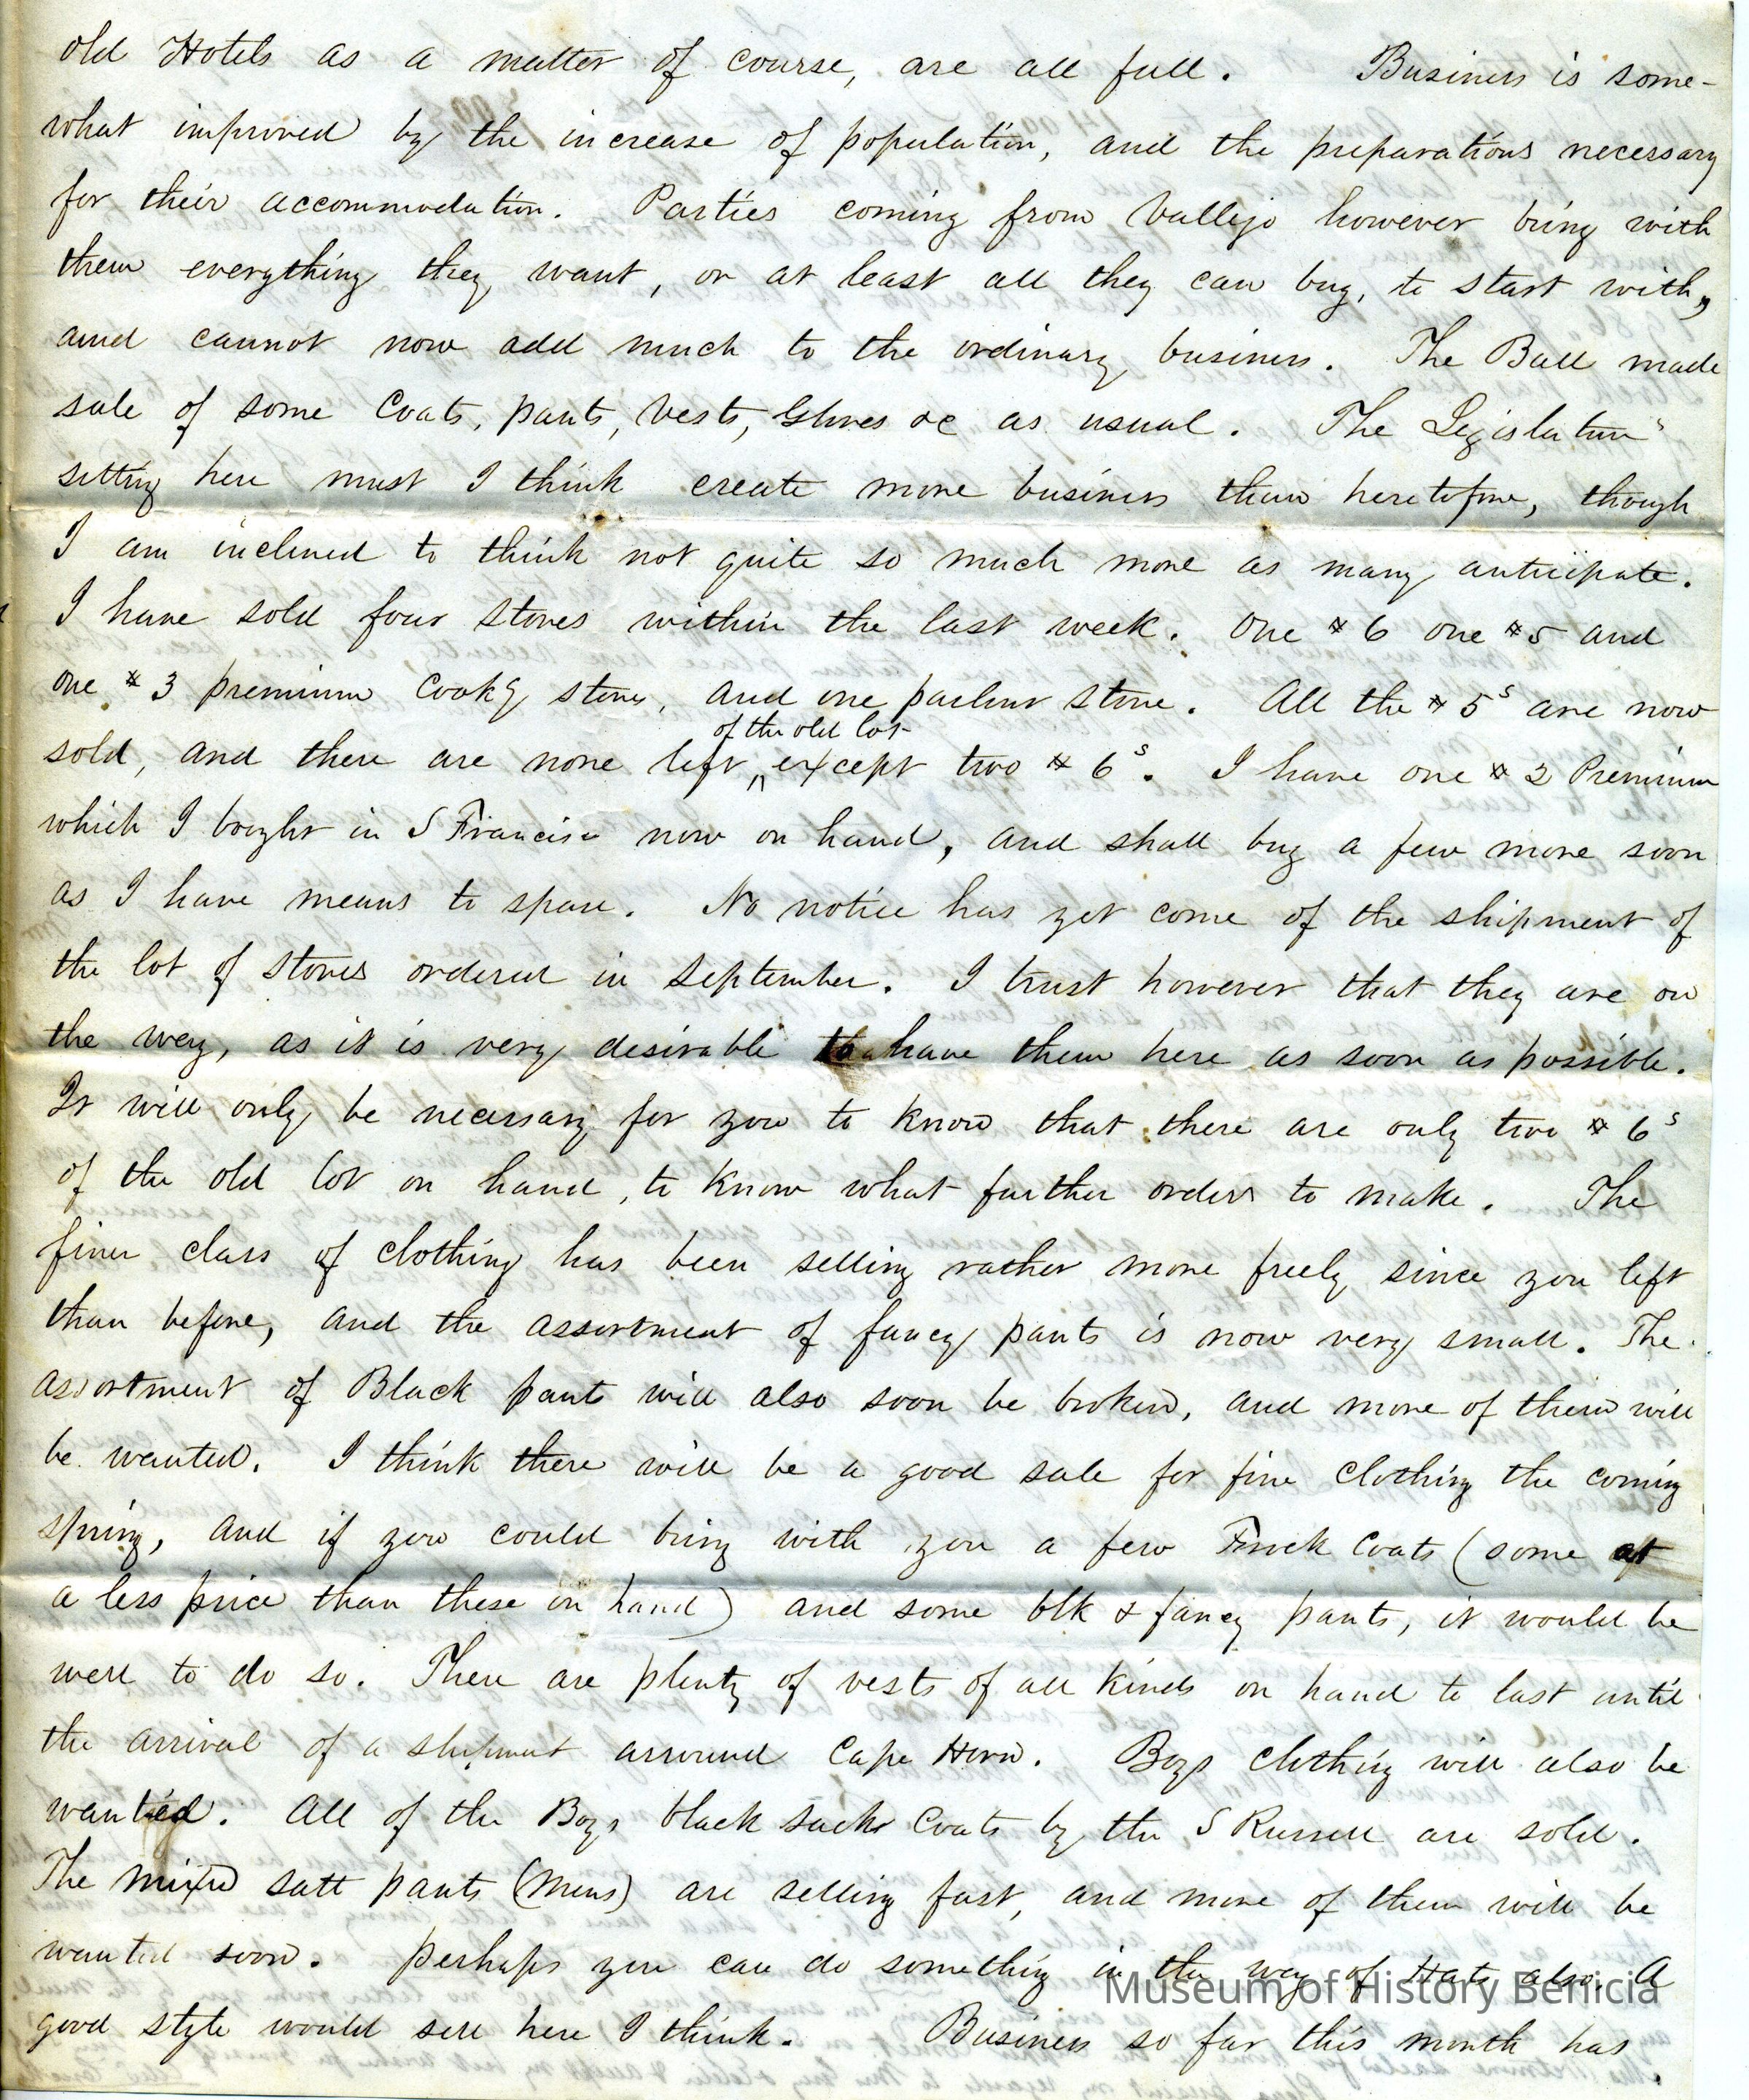 old Hotels as a matter of course, are all full. Business is some-
what improved by the increase of population, and the preparations necessary
for their accommodation. Parties coming from Vallejo however bring with
them everything they want, or at least all they can buy, to start with,
and cannot now add much to the ordinary business. The Ball made
sale of some Coats, pants, Vests, Gloves &c as usual. The Legislature
sitting here must I think create more business than heretofore, though
I am inclined to think not quite so much more as many anticipate.
I have sold four stoves within the last week. One # 6 one # 5 and
one # 3 premium Cookg stove, and one parlour stove. All the # 5s are now
of the old lot
sold, and there are none left ^ except two # 6s. I have one # 2 Premium
which I bought in S Francisco now on hand, and shall buy a few more soon
as I have means to spare. No notice has yet come of the shipment of
the lot of stoves ordered in September. I trust however that they are on
the way, as it is very desirable to have them here as soon as possible.
It will only be necessary for you to know that there are only two # 6s
of the old lot on hand, to know what further orders to make. The
finer class of clothing has been selling rather more freely since you left
than before, and the assortment of fancy pants is now very small. The
assortment of Black pants will also soon be broken, and more of them will
be wanted. I think there will be a good sale for fine clothing the coming
spring, and if you could bring with you a few Frock Coats (some at
a less price than these on hand) and some blk & fancy pants, it would be
well to do so. There are plenty of vests of all kinds on hand to last until
the arrival of a shipment arround Cape Horn. Boys clothing will also be
wanted. All of the Boys black sack Coats by the S Russell are sold.
The mixed satt pants (mens) are selling fast, and more of them will be
wanted soon. Perhaps you can do something in the way of Hats also. A
good style would sell here I think. Business so far this month has
Museum of History Benicia